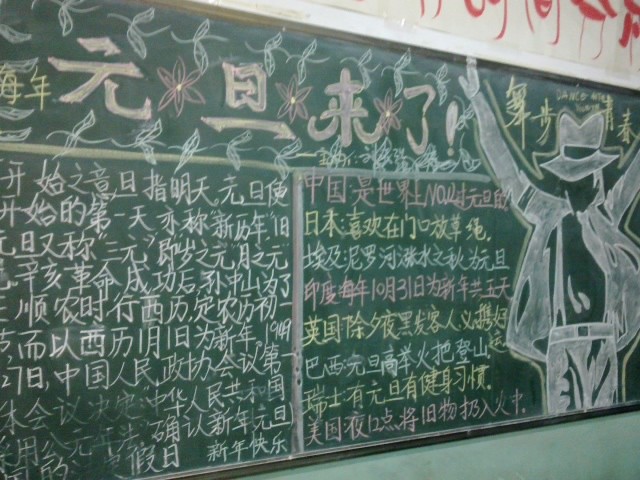 元旦来了!
每年
舞步青春
开始之意,旦指明天,元旦便
开始的第一天亦称"新历年""旧
元旦又称"三元",即岁之元,月之元
辛亥革命成功后,孙中山为了
顺农时,行西历,定农历初一
而以西历1月1日为新年。1949
27日,中国人民政协会议第一
体会议决定"中华人民共和国
采用公元年法"确认新年元旦
假日 新年快乐
中国:是世界上NO.1过元旦的
日本:喜欢在门口放草绳。
埃及:尼罗河涨水之秋为元旦
印度每年10月31日为新年共五天
英国:除夕夜黑发客人,义携
巴西:元旦高举火把登山
瑞士:有元旦有健身习惯。
美国:夜12点,将旧物扔入火中.